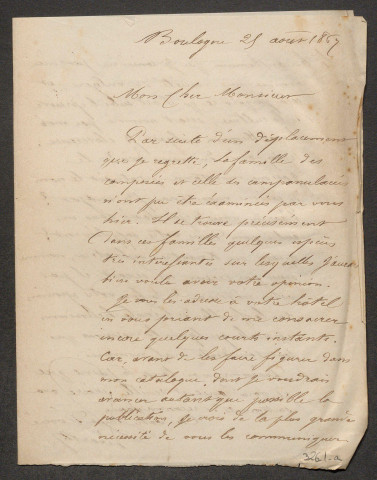 Boulogne 25 août 1857
Mon Cher Monsieur
Par suite d'un déplacement
que je regrette, la famille des
composées et celle des campanulacées
n'ont pu être examinées par vous
hier. Il se trouve précisément
dans ces familles quelques espèces
très intéressantes sur lesquelles j'aurais
bien voulu avoir votre opinion.
Je vous les adresse à votre hôtel
en vous priant de me consacrer
encore quelques courts instants.
Car, avant de les faire figurer dans
mon catalogue, dont je voudrais
avancer autant que possible la
publication, je vois de la plus grande
nécessité de vous les communiquer
3261.a